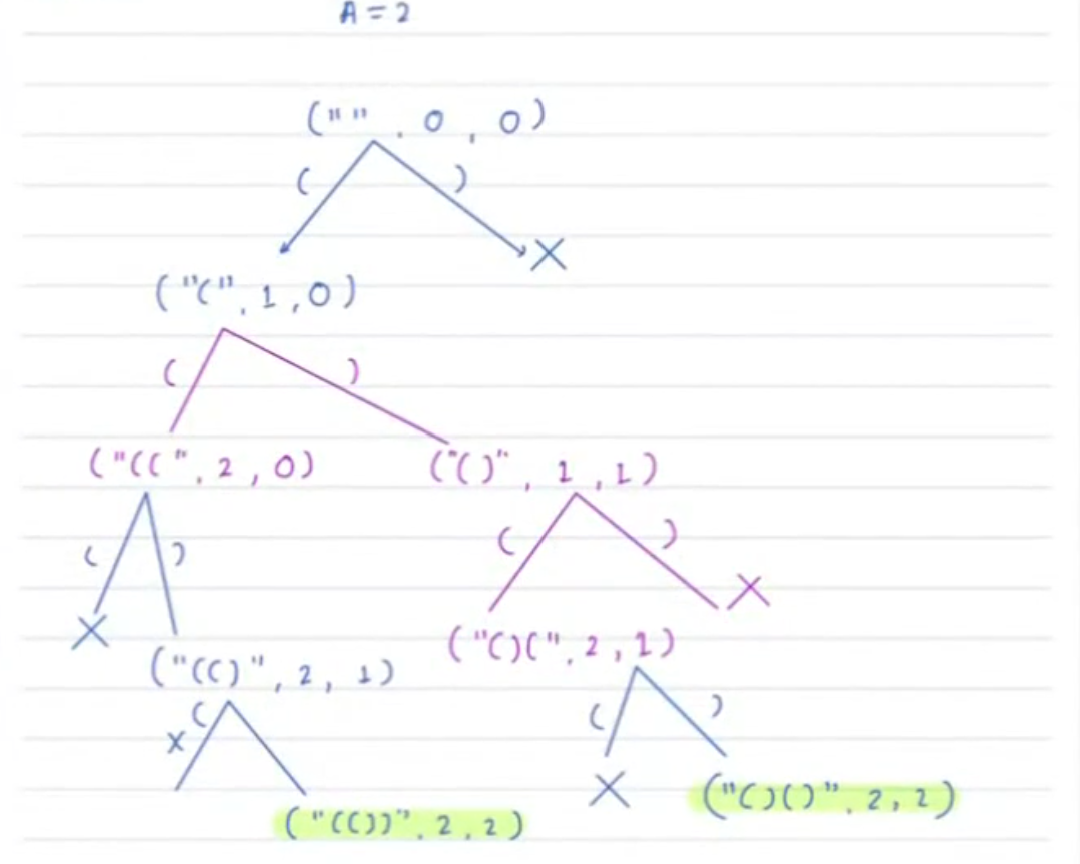 A = 2
("" , 0 , 0)
( )
X
("(", 1, 0)
( )
("((", 2, 0) ("()", 1, 1)
( ) ( )
X X
("(()", 2, 1) ("()(", 2, 1)
x ( ( )
X ("()()", 2, 2)
("(())", 2, 2)